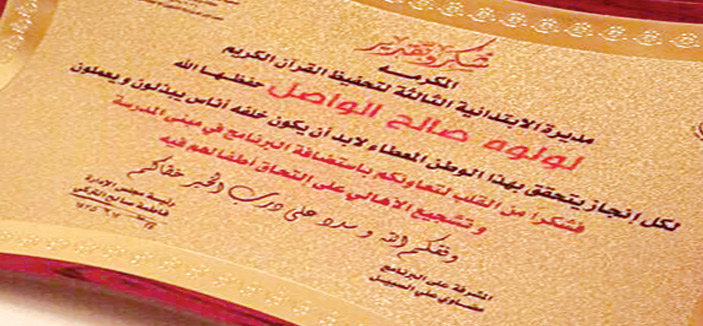 شكر وتقدير
المكرمه
مديرة الابتدائية الثالثة لتحفيظ القرآن الكريم
لولوه صالح الواصل حفظها الله
لكل إنجاز يتحقق بهذا الوطن المعطاء لابد أن يكون خلفه أناس يبذلون ويعملون
فشكرا من القلب لتعاونكم باستضافة البرنامج في مبنى المدرسة
وتشجيع الاهالي على التحاق أطفالهم فيه
وفقكم الله وسدد على درب الخير خطاكم
المشرفة على البرنامج
مضاوي علي السبيل
رئيسة مجلس الإدارة
فاطمة صالح التركي